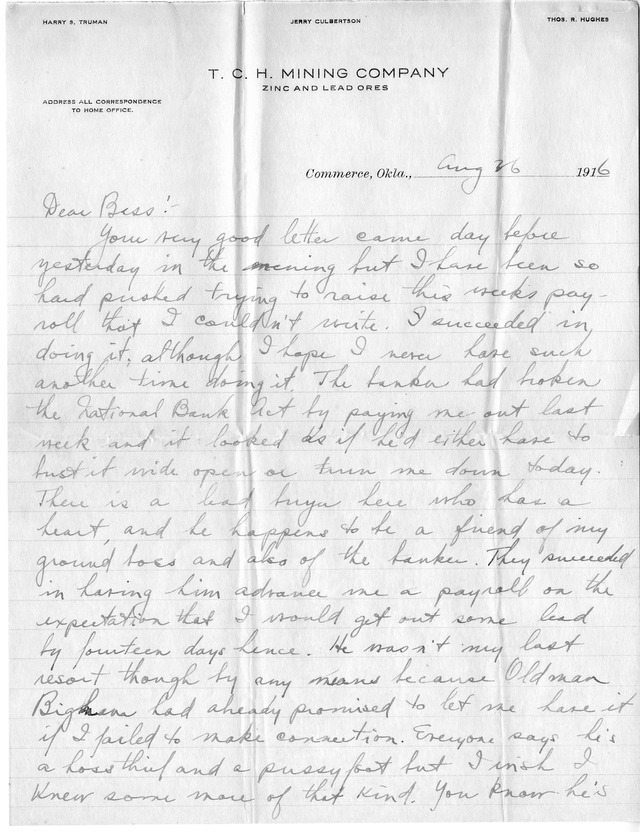 HARRY S. TRUMAN JERRY CULBERTSON THOS. R. HUGHES
T. C. H. MINING COMPANY
ZINC AND LEAD ORES
ADDRESS ALL CORRESPONDENCE
TO HOME OFFICE.
Commerce, Okla., Aug 26 1916
Dear Bess:-
Your very good letter came day before
yesterday in the evening but I have been so
hard pushed trying to raise this weeks pay-
roll that I couldn't write. I succeeded in
doing it, although I hope I never have such
another time doing it. The banker had broken
the National Bank Act by paying me out last
week and it looked as if he'd either have to
bust it wide open or turn me down today.
There is a lead buyer here who has a
heart, and he happens to be a friend of my
ground boss and also of the banker. They succeeded
in having him advance me a payroll on the
expectation that I would get out some lead
by fourteen days hence. He wasn't my last
resort though by any means because Oldman
Bigham had already promised to let me have it
if I failed to make connection. Everyone says he's
a hoss thief and a pussyfoot but I wish I
knew some more of that kind. You know he's